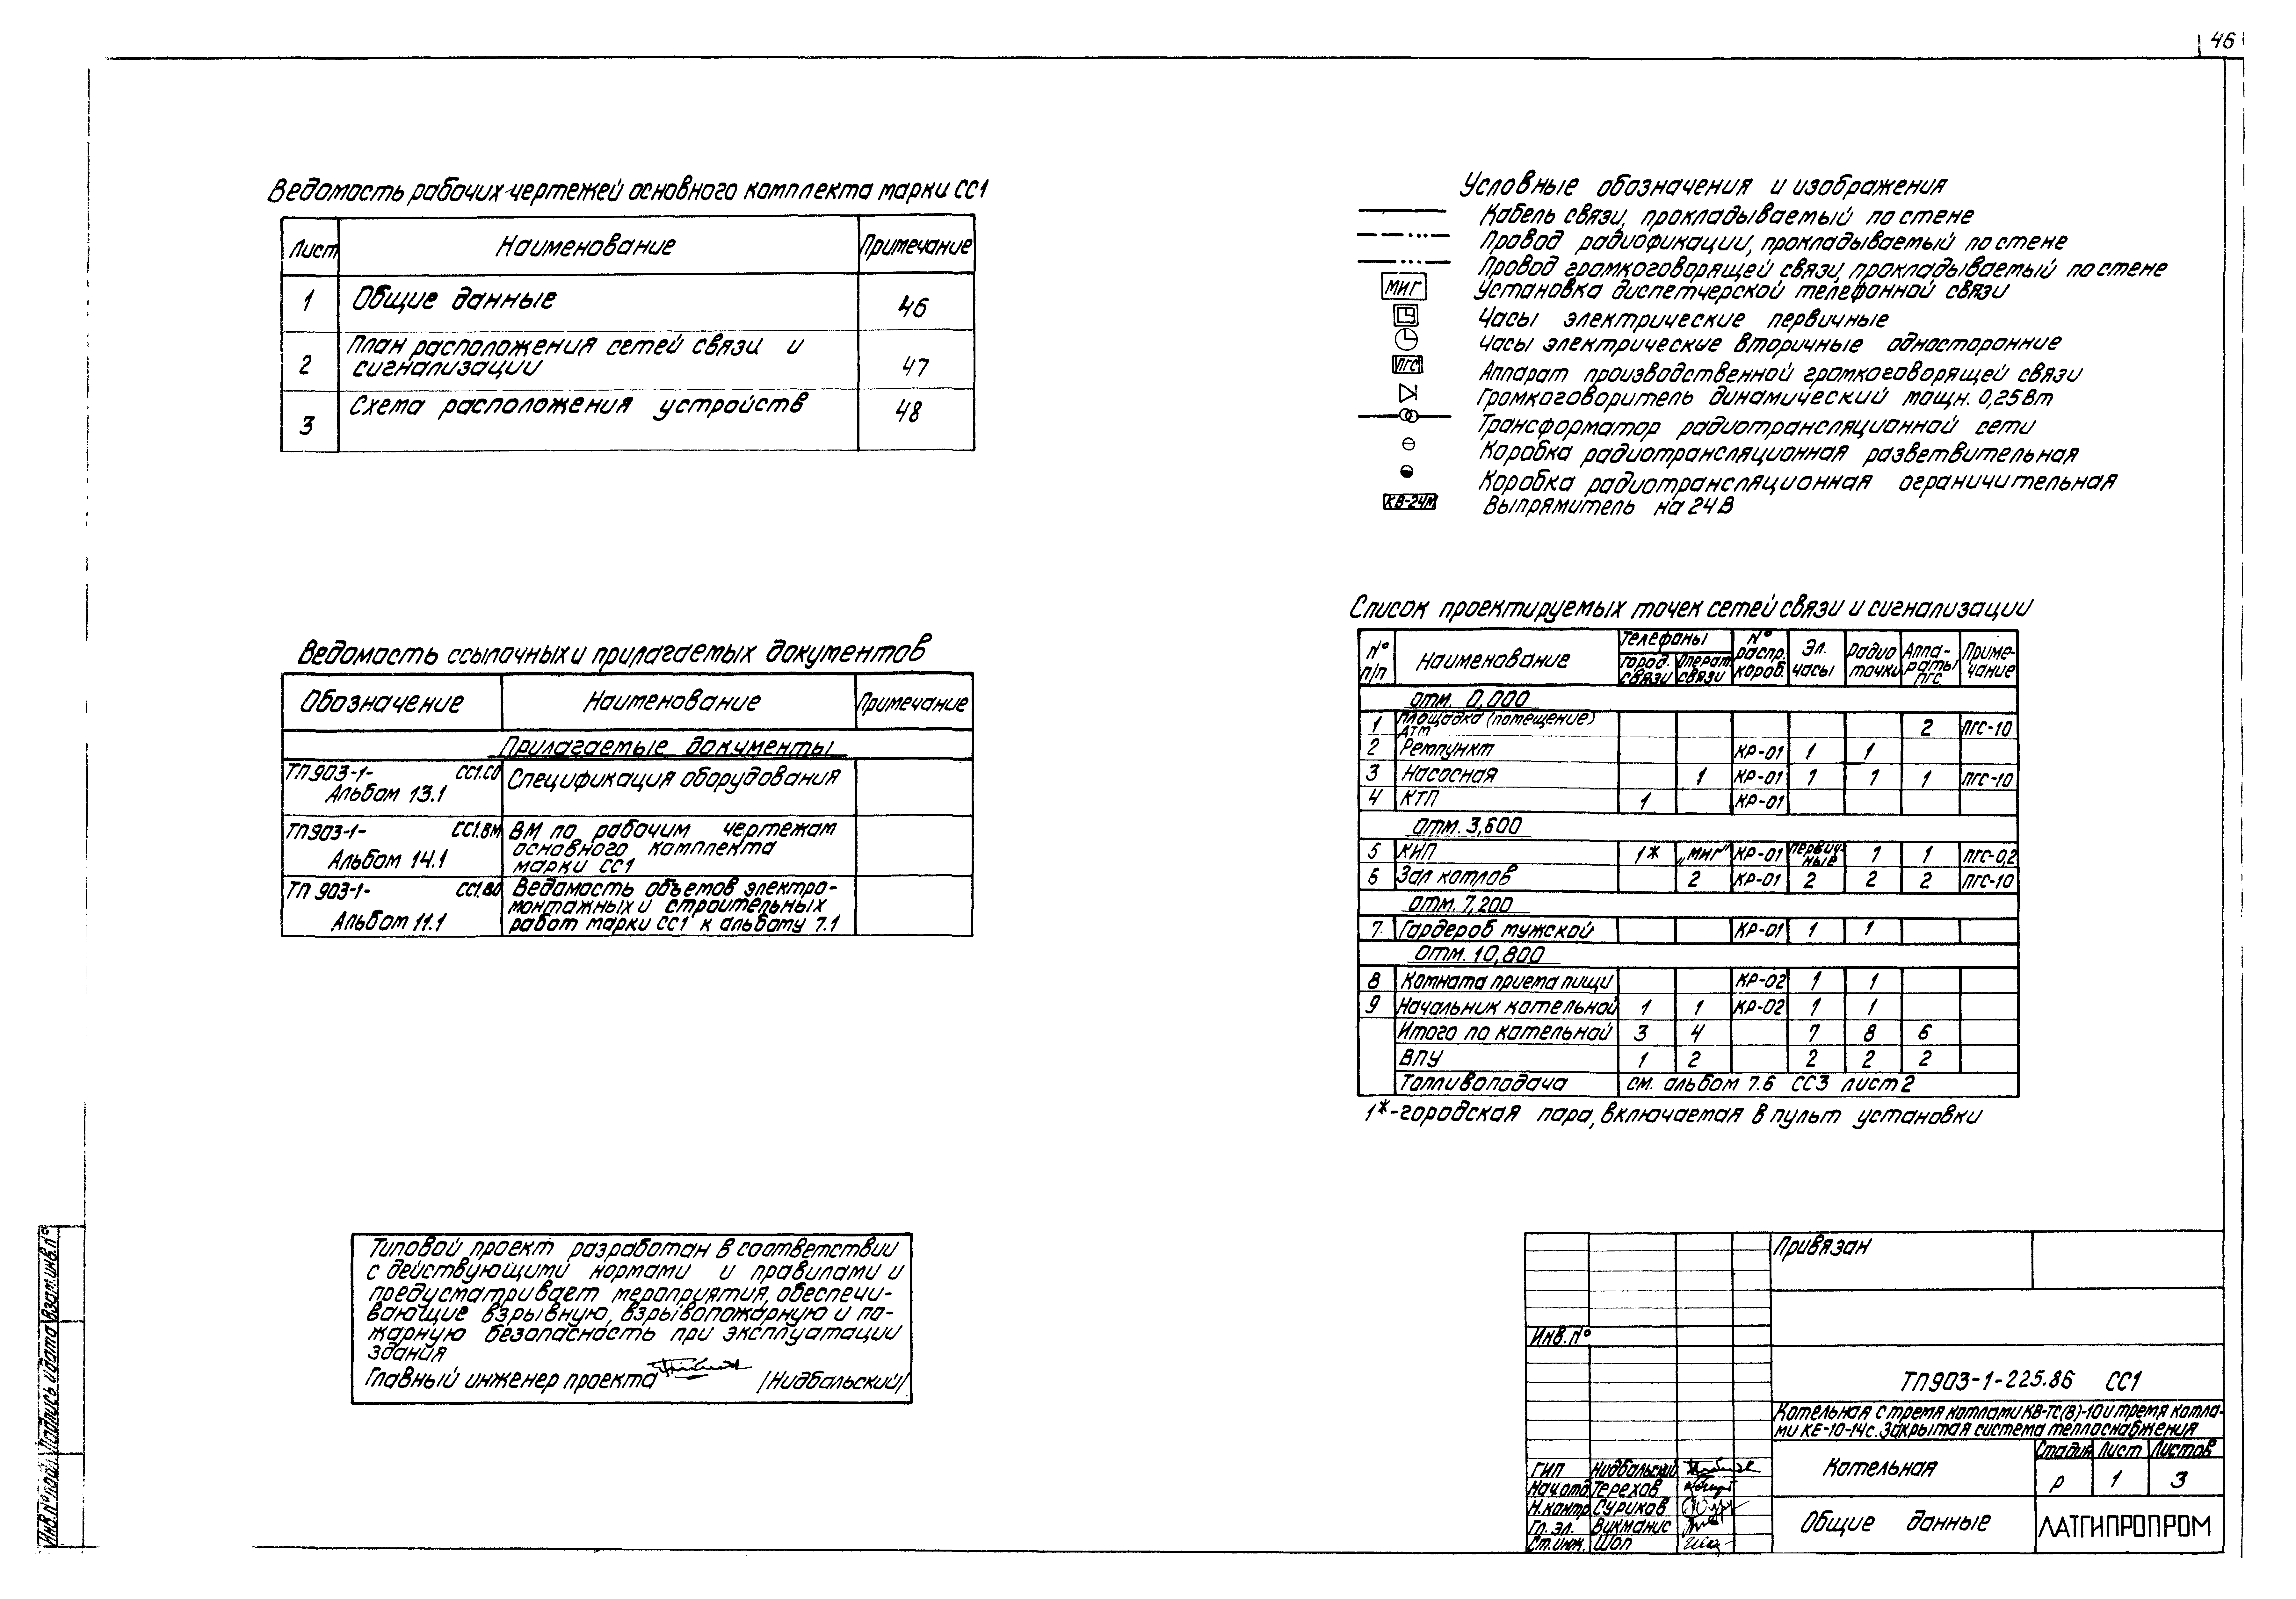 46
Ведомость рабочих чертежей основного комплекта марки СС1
Лист Наименование Примечание
1 Общие данные 46
2 План расположения сетей связи и сигнализации 47
3 Схема расположения устройств 48
Ведомость ссылочных и прилагаемых документов
Обозначение Наименование Примечание
Прилагаемые документы
ТП903-1- СС1.СО Спецификация оборудования
Альбом 13.1
ТП903-1- СС1.ВМ ВМ по рабочим чертежам
основного комплекта
Альбом 14.1 марки СС1
ТП 903-1- СС1.ВО Ведомость объемов электро-
монтажных и строительных
Альбом 11.1 работ марки СС1 к альбому 7.1
Типовой проект разработан в соответствии
с действующими нормами и правилами и
предусматривает мероприятия, обеспечи-
вающие взрывную, взрывопожарную и по-
жарную безопасность при эксплуатации
здания
Главный инженер проекта /Нидбальский/
Условные обозначения и изображения
Кабель связи, прокладываемый по стене
Провод радиофикации, прокладываемый по стене
Провод громкоговорящей связи, прокладываемый по стене
МИГ Установка диспетчерской телефонной связи
Часы электрические первичные
Часы электрические вторичные односторонние
ПГС Аппарат производственной громкоговорящей связи
Громкоговоритель динамический мощн. 0,25Вт
Трансформатор радиотрансляционной сети
Коробка радиотрансляционная разветвительная
Коробка радиотрансляционная ограничительная
КВ-24М Выпрямитель на 24В
Список проектируемых точек сетей связи и сигнализации
№ п/п Наименование Телефоны город. связи Операт связи № распр. короб. Эл. часы Радио точки Аппа-раты ПГС Приме-чание
отм. 0,000
1 Площадка (помещение) ДТМ 2 ПГС-10
2 Ремпункт КР-01 1 1
3 Насосная 1 КР-01 1 1 1 ПГС-10
4 КТП 1 КР-01
отм. 3,600
5 КИП 1* „МИГ" КР-01 Первич-ные 1 1 ПГС-0,2
6 Зал котлов 2 КР-01 2 2 2 ПГС-10
отм. 7,200
7. Гардероб мужской КР-01 1 1
отм. 10,800
8 Комната приема пищи КР-02 1 1
9 Начальник котельной 1 1 КР-02 1 1
Итого по котельной 3 4 7 8 6
ВПУ 1 2 2 2 2
Топливоподача см. альбом 7.6 СС3 лист 2
1*-городская пара, включаемая в пульт установки
Привязан
Инв.№
ТП903-1-225.86 СС1
Котельная с тремя котлами КВ-ТС(В)-10 и тремя котла-
ми КЕ-10-14с. Закрытая система теплоснабжения
Котельная
Стадия Лист Листов
Р 1 3
Общие данные
ЛАТГИПРОПРОМ
ГИП Нидбальский
Нач.отд Терехов
Н.контр Суриков
Гл. эл. Викманис
Ст.инж. Шоп
Инв.№ подл. Подпись и дата Взам.инв.№